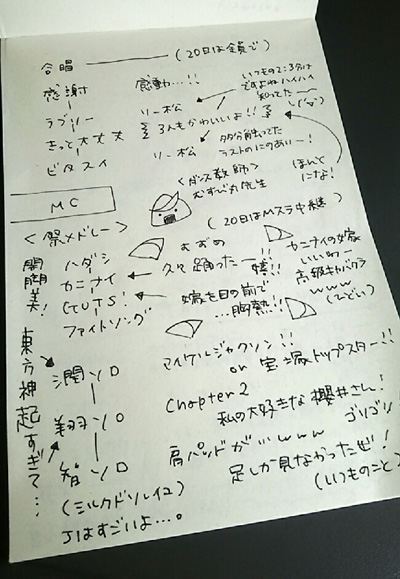 合唱 ―――――― (20日は全員で)
感謝 感動…!!
いつもの2:3分は
ですよねハイハイ
知ってたー
ラブリー ソー松
3人もかわいいよ!!
きっと大丈夫 ソー松
タダ分解ってた
ラストのにのあいー!
ビタスイ
ほんと
にな!
<ダンス教師>
むすび丸先生
MC
(20日はMステ中継)
<祭メドレー> おずめ
ハダシ 久々踊ったー!!
カニナイの嫁
いいねー
カニナイ 嬉!!
高級キャバクラ
www
(ひどい)
GUTS! 嫁も目の前で
…胸熱!!
ファイトソング
開脚美!
東方神起すぎて…
潤ソロ マイケルジャクソン!!
or 宝塚トップスター!!
Chapter2
翔ソロ 私の大好きな櫻井さん!
ゴリゴリ!
肩パッドがいいwww
智ソロ 足しか見なかったぜ!
(いつものこと)
(ミルクドソレイユ)
Jはすごいよ…。